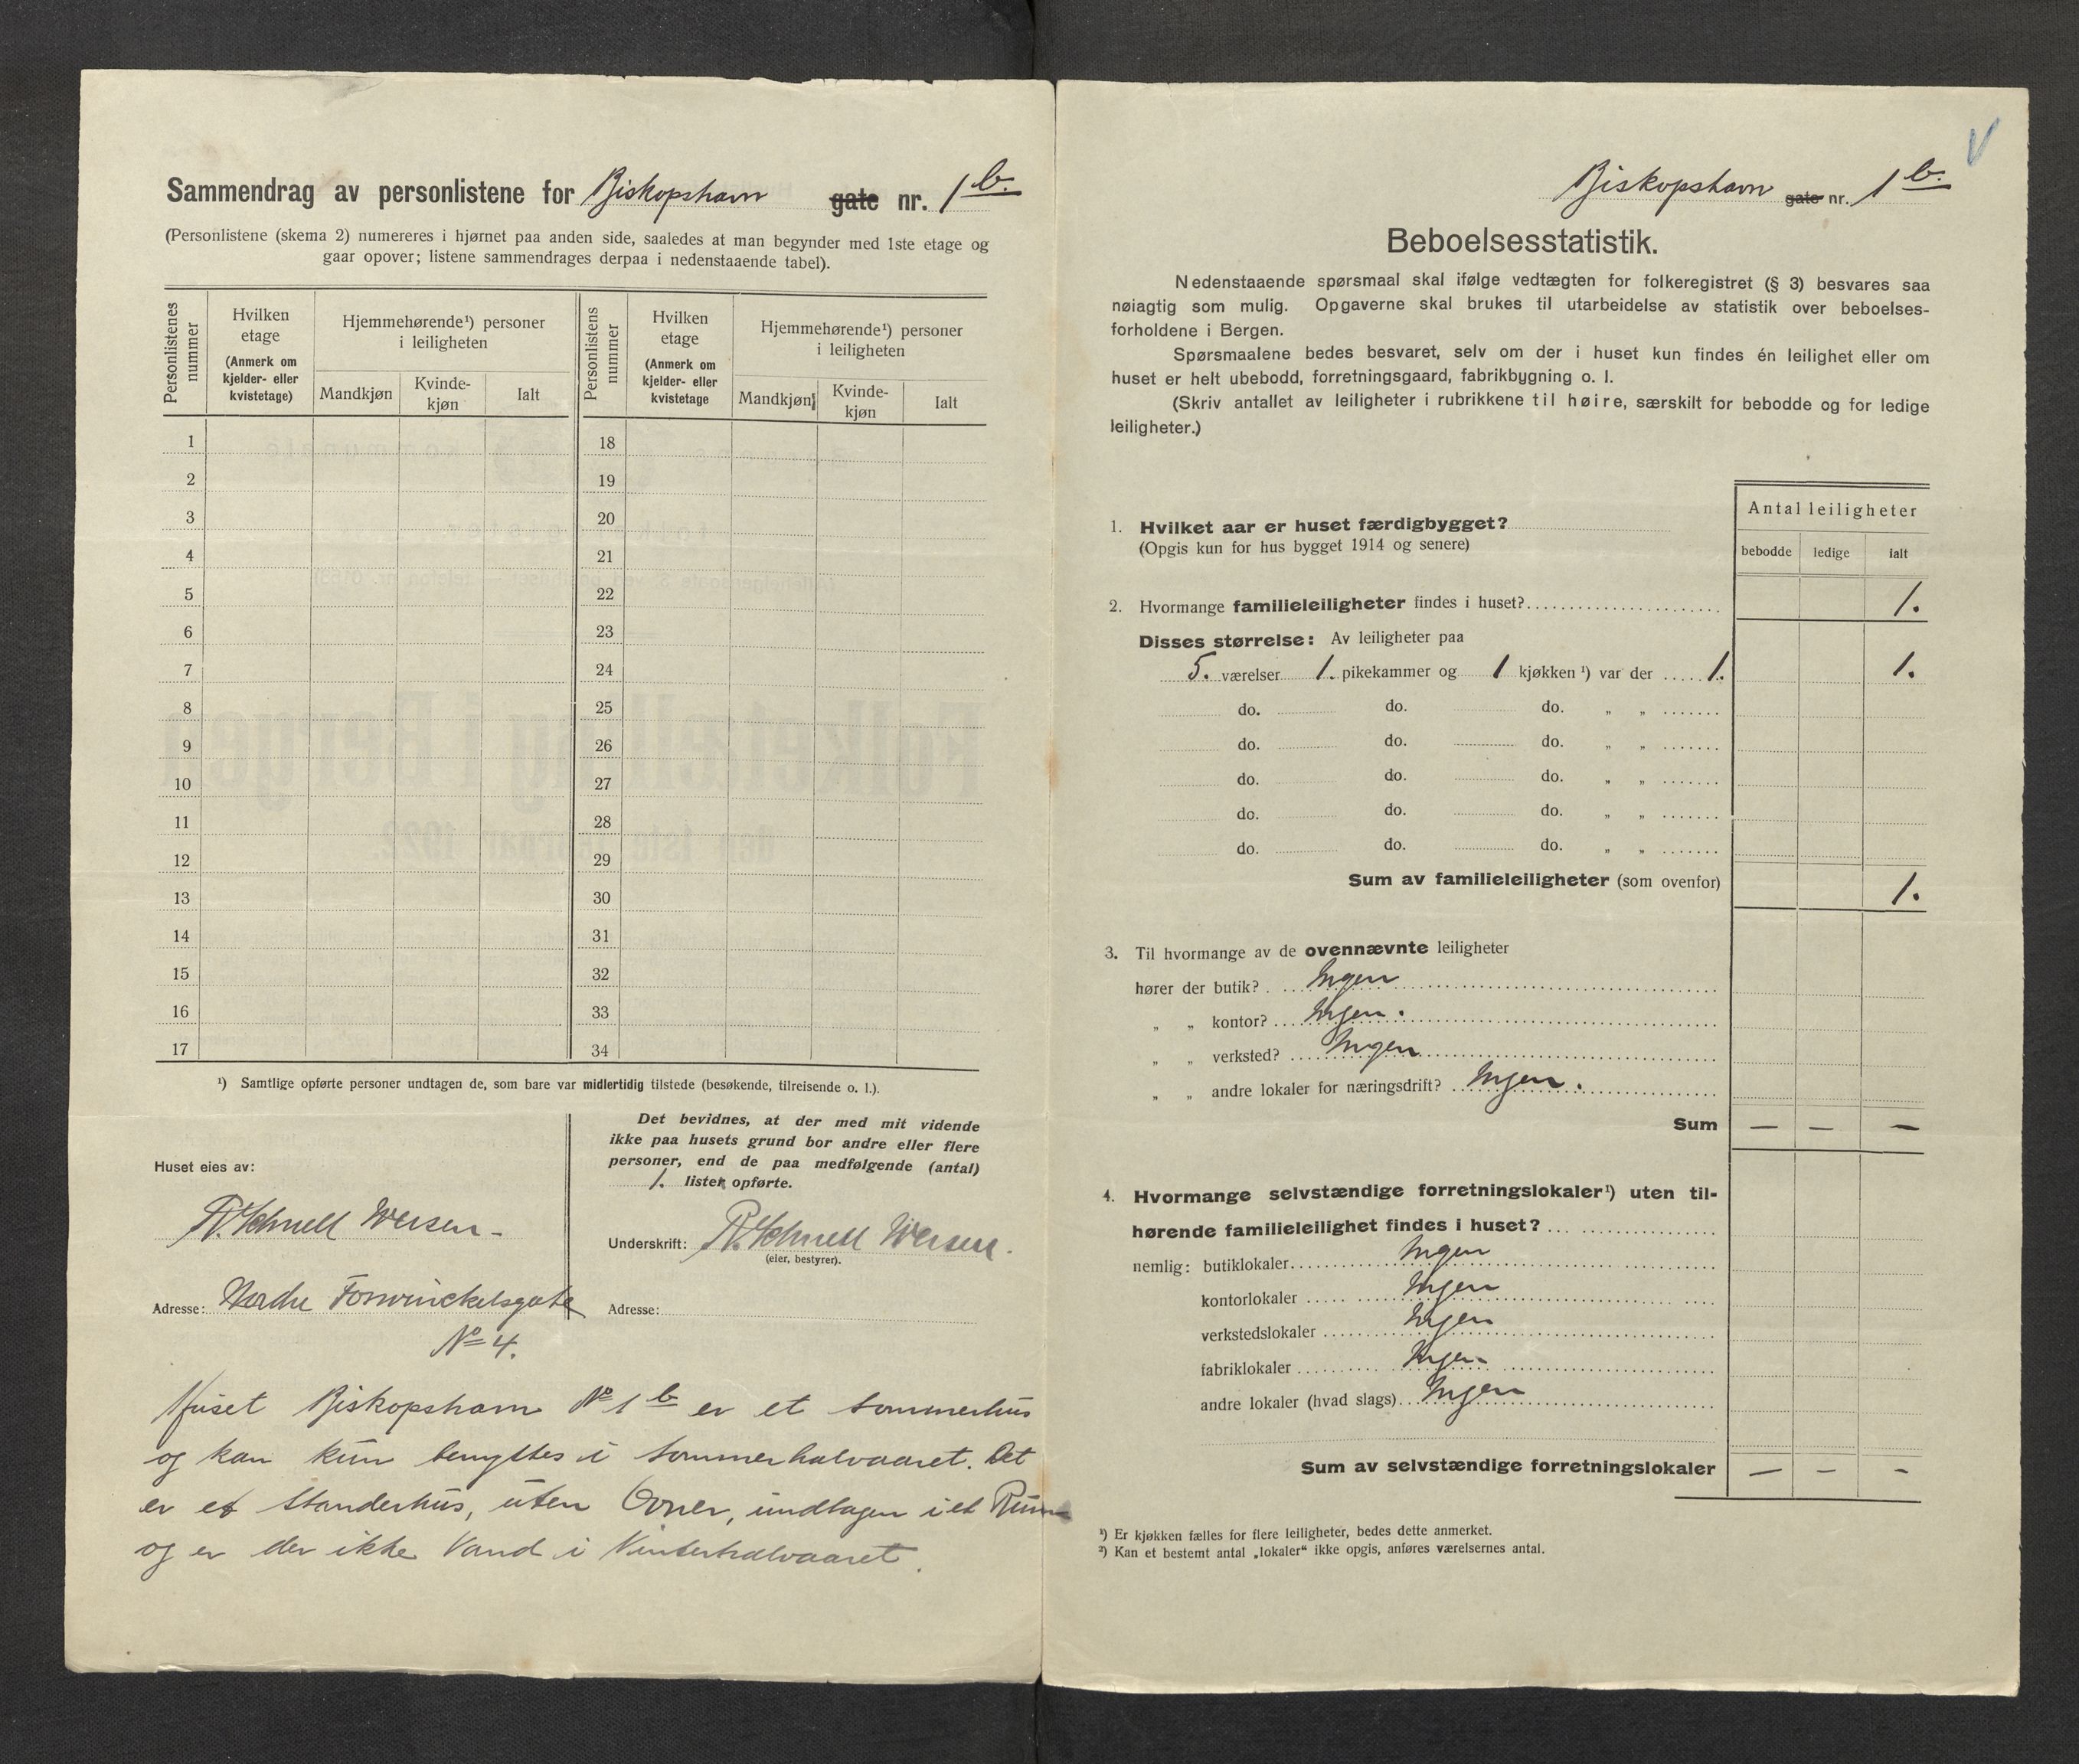 Sammendrag av personlistene for Biskopshavn gate nr. 1 b.
(Personlistene (skema 2) numereres i hjørnet paa anden side, saaledes at man begynder med 1ste etage og
gaar opover; listene sammendrages derpaa i nedenstaaende tabel).
Personlistenes nummer
Hvilken etage
(Anmerk om kjelder- eller kvistetage)
Hjemmehørende¹) personer i leiligheten
Mandkjøn
Kvinde-kjøn
Ialt
Personlistens nummer
Hvilken etage
(Anmerk om kjelder- eller kvistetage
Hjemmehørende¹) personer i leiligheten
Mandkjøn
Kvinde-kjøn
Ialt
1 18
2 19
3 20
4 21
5 22
6 23
7 24
8 25
9 26
10 27
11 28
12 29
13 30
14 31
15 32
16 33
17 34
¹) Samtlige opførte personer undtagen de, som bare var midlertidig tilstede (besøkende, tilreisende o. l.).
Huset eies av:
R. Schnell Wersen.
Adresse: Nordre Forswinckelsgate
No 4.
Det bevidnes, at der med mit vidende
ikke paa husets grund bor andre eller flere
personer, end de paa medfølgende (antal)
1. lister opførte.
Underskrift: R. Schnell Wersen.
(eier, bestyrer).
Adresse:
Huset Biskopshavn No 1 b er et Sommerhus
og kan kun benyttes i Sommerhalvaaret. Det
er et Standerhus, uten Ovner, undtagen i et Rum
og er der ikke Vand i Vinterhalvaaret.
Biskopshavn gate nr. 1 b.
Beboelsesstatistik.
Nedenstaaende spørsmaal skal ifølge vedtægten for folkeregistret (§ 3) besvares saa
nøiagtig som mulig. Opgaverne skal brukes til utarbeidelse av statistik over beboelses-
forholdene i Bergen.
Spørsmaalene bedes besvaret, selv om der i huset kun findes én leilighet eller om
huset er helt ubebodd, forretningsgaard, fabrikbygning o. l.
(Skriv antallet av leiligheter i rubrikkene til høire, særskilt for bebodde og for ledige
leiligheter.)
Antal leiligheter
bebodde ledige ialt
1. Hvilket aar er huset færdigbygget?
(Opgis kun for hus bygget 1914 og senere)
2. Hvormange familieleiligheter findes i huset? 1.
Disses størrelse: Av leiligheter paa
5. værelser 1. pikekammer og 1 kjøkken ¹) var der 1. 1.
do. do. do. „ „
do. do. do. „ „
do. do. do. „ „
do. do. do. „ „
do. do. do. „ „
Sum av familieleiligheter (som ovenfor) 1.
3. Til hvormange av de ovennævnte leiligheter
hører der butik? Ingen
„ „ kontor? Ingen.
„ „ verksted? Ingen
„ „ andre lokaler for næringsdrift? Ingen.
Sum — — —
4. Hvormange selvstændige forretningslokaler¹) uten til-
hørende familieleilighet findes i huset?
nemlig: butiklokaler Ingen
kontorlokaler Ingen
verkstedslokaler Ingen
fabriklokaler Ingen
andre lokaler (hvad slags) Ingen
Sum av selvstændige forretningslokaler — - -
¹) Er kjøkken fælles for flere leiligheter, bedes dette anmerket.
²) Kan et bestemt antal „lokaler“ ikke opgis, anføres værelsernes antal.